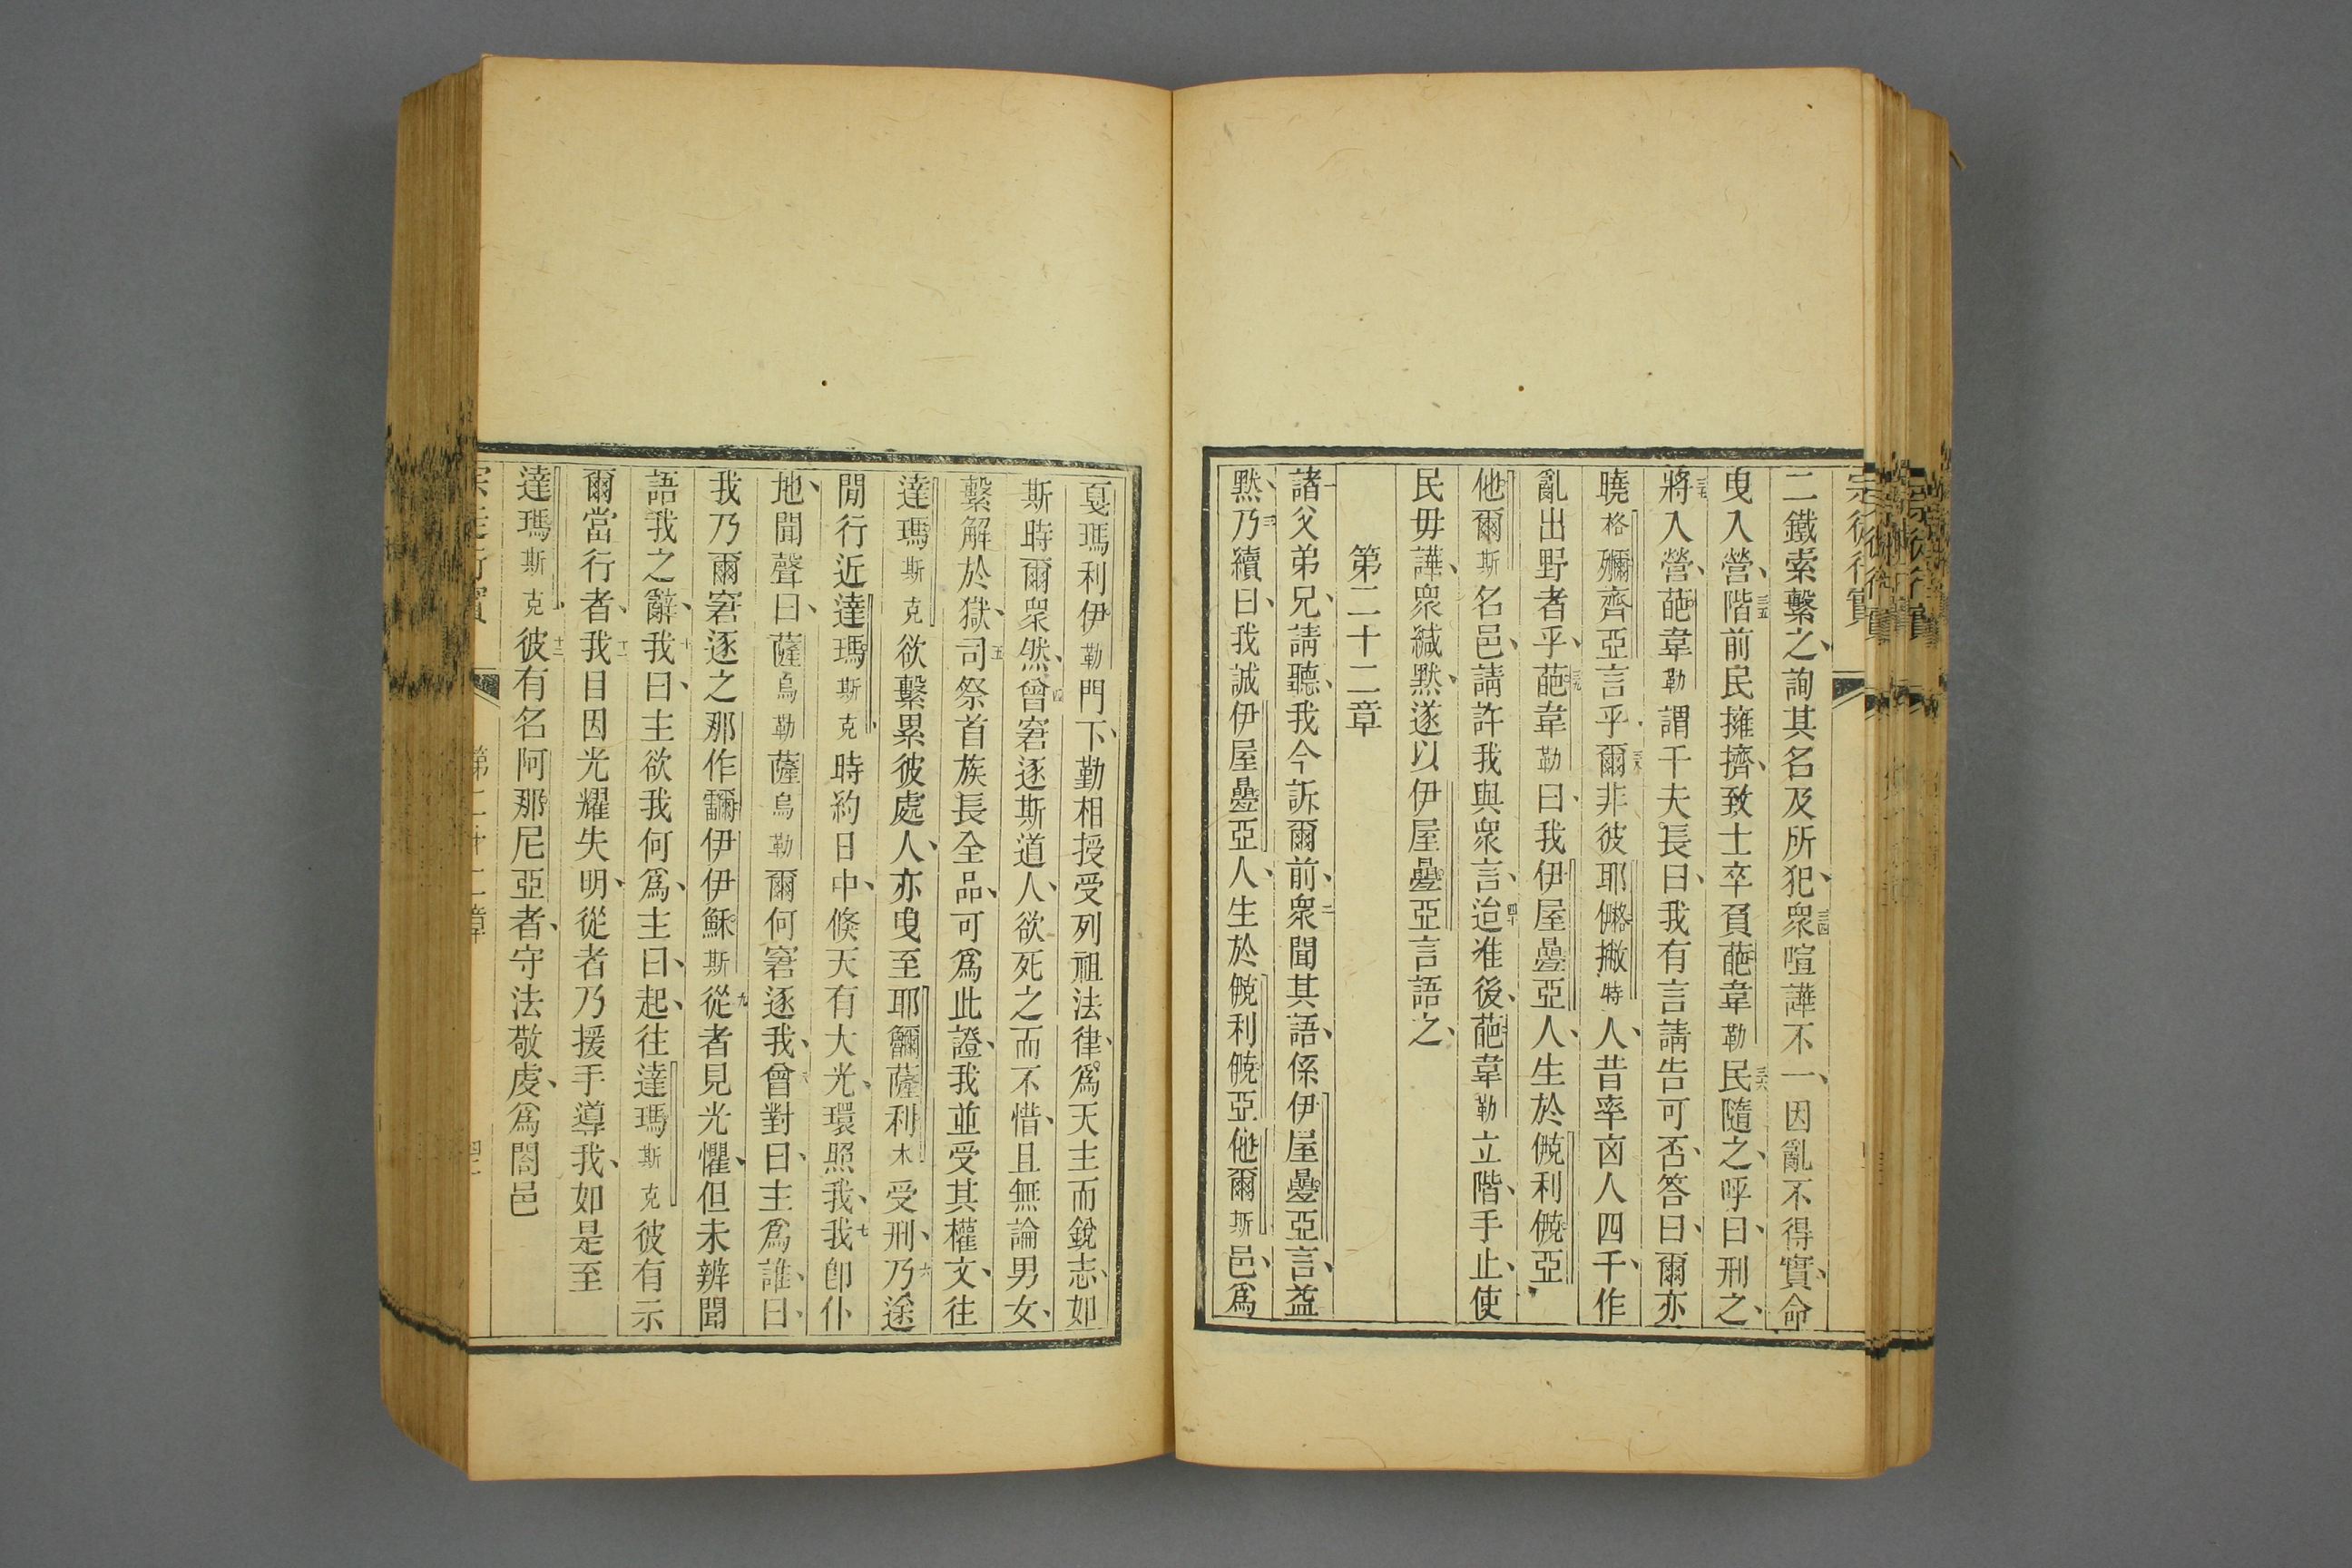 宗徒行實
二鐵索繫之、詢其名及所犯、三四衆喧譁不一、因亂不得實、命
曳入營、三五階前民擁擠、致士卒負葩韋勒三六民隨之、呼曰、刑之、
三七將入營、葩韋勒謂千夫長曰、我有言請告可否、答曰、爾亦
曉格殢齊亞言乎、三八爾非彼耶撇特人、昔率囟人四千、作
亂出野者乎、三九葩韋勒曰、我伊屋疊亞人、生於僥利僥亞
他爾斯名邑、請許我與衆言、四十迨准後、葩韋勒立階、手止、使
民毋譁、衆緘默、遂以伊屋疊亞言語之、
第二十二章
一諸父弟兄、請聽、我今訴爾前、二衆聞其語、係伊屋疊亞言、益
默、三乃續曰、我誠伊屋疊亞人、生於僥利僥亞他爾斯邑、爲
戛瑪利伊勒門下、勤相授受列祖法律、爲天主而銳志、如
斯時爾衆然、四曾窘逐斯道人、欲死之而不惜、且無論男女、
繫解於獄、五司祭首族長全品、可爲此證、我並受其權文、往
達瑪斯克欲繫累彼處人、亦曳至耶薩利木受刑、六乃途
閒行近達瑪斯克、時約日中、倏天有大光、環照我、七我卽仆
地、聞聲曰、薩烏勒薩烏勒爾何窘逐我、八曾對曰、主爲誰、曰、
我乃爾窘逐之那作爾伊伊穌斯九從者見光懼、但未辨聞
語我之辭、十我曰、主欲我何爲、主曰、起、往達瑪斯克彼有示
爾當行者、十一我目因光耀失明、從者乃援手導我、如是至
達瑪斯克、十二彼有名阿那尼亞者、守法敬虔、爲閤邑
宗徒行實 第二十二章